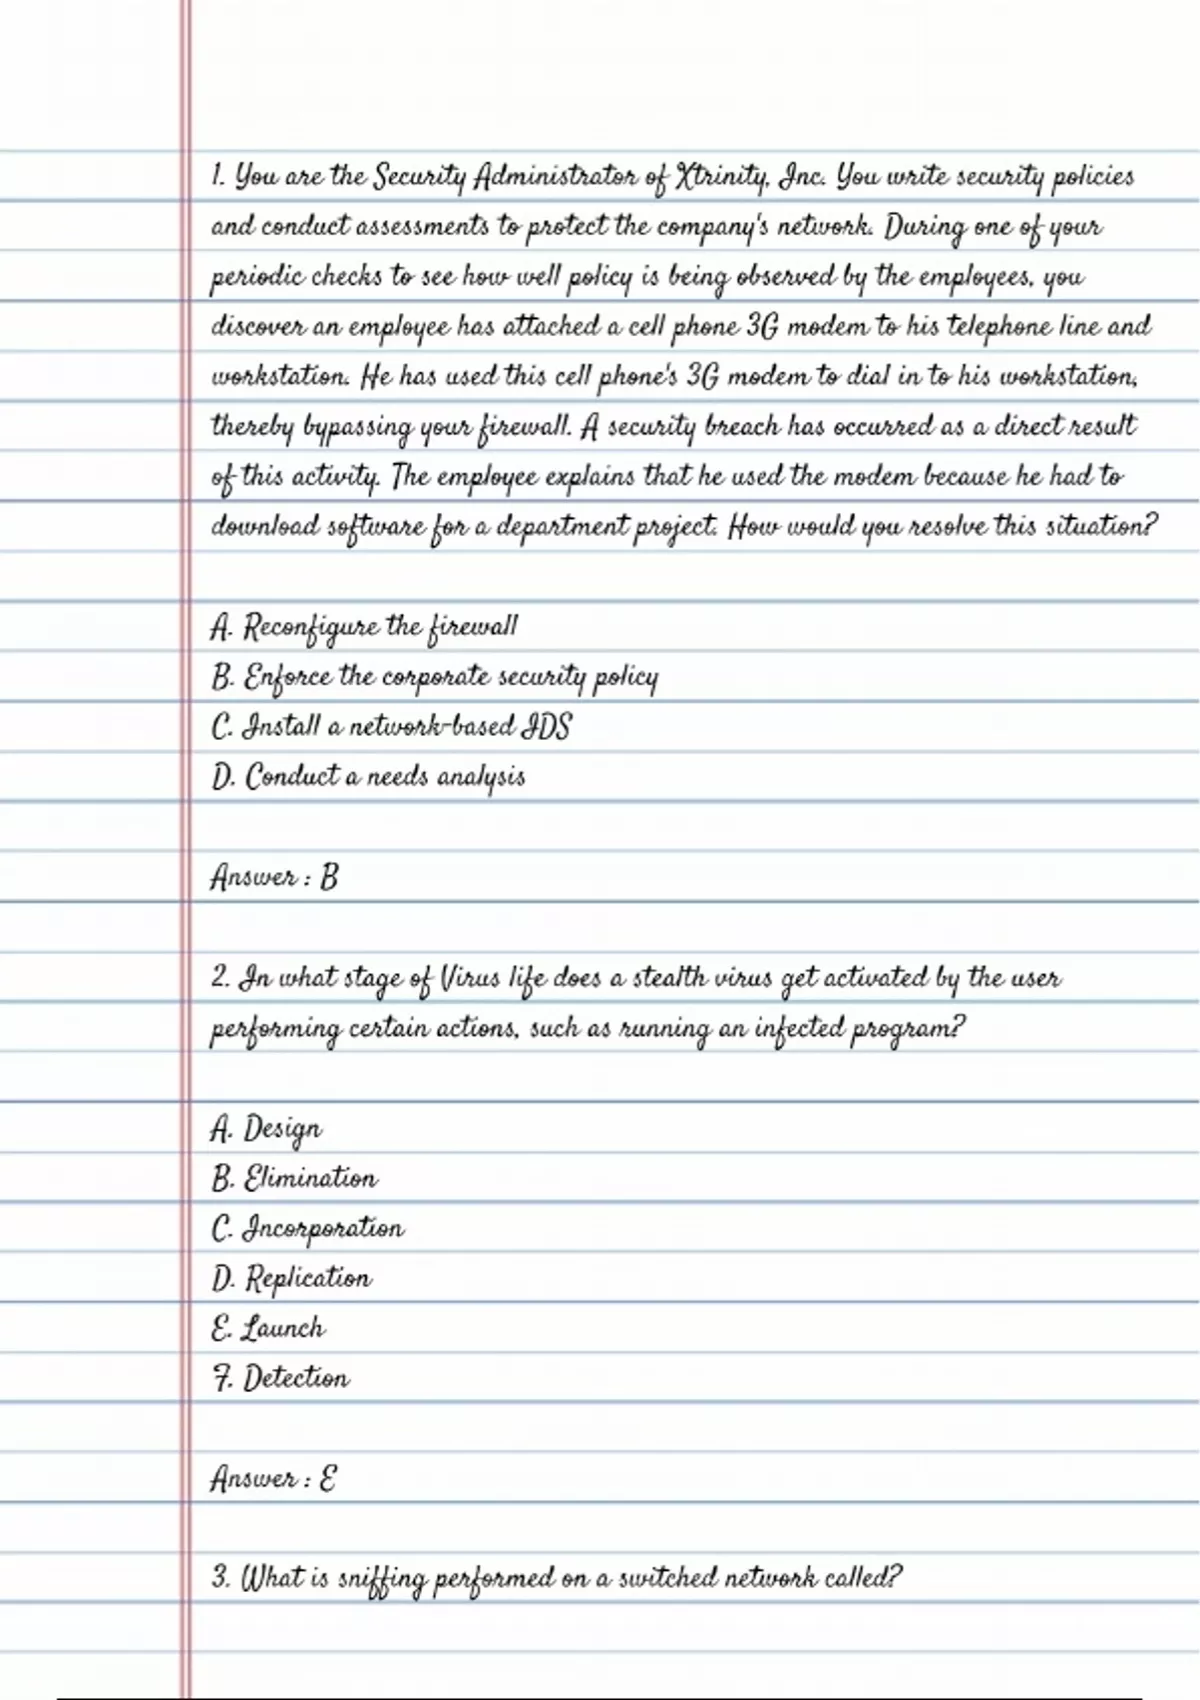 1. You are the Security Administrator of Xtrinity, Inc. You write security policies
and conduct assessments to protect the company's network. During one of your
periodic checks to see how well policy is being observed by the employees, you
discover an employee has attached a cell phone 3G modem to his telephone line and
workstation. He has used this cell phone's 3G modem to dial in to his workstation,
thereby bypassing your firewall. A security breach has occurred as a direct result
of this activity. The employee explains that he used the modem because he had to
download software for a department project. How would you resolve this situation?
A. Reconfigure the firewall
B. Enforce the corporate security policy
C. Install a network-based IDS
D. Conduct a needs analysis
Answer : B
2. In what stage of Virus life does a stealth virus get activated by the user
performing certain actions, such as running an infected program?
A. Design
B. Elimination
C. Incorporation
D. Replication
E. Launch
F. Detection
Answer : E
3. What is sniffing performed on a switched network called?